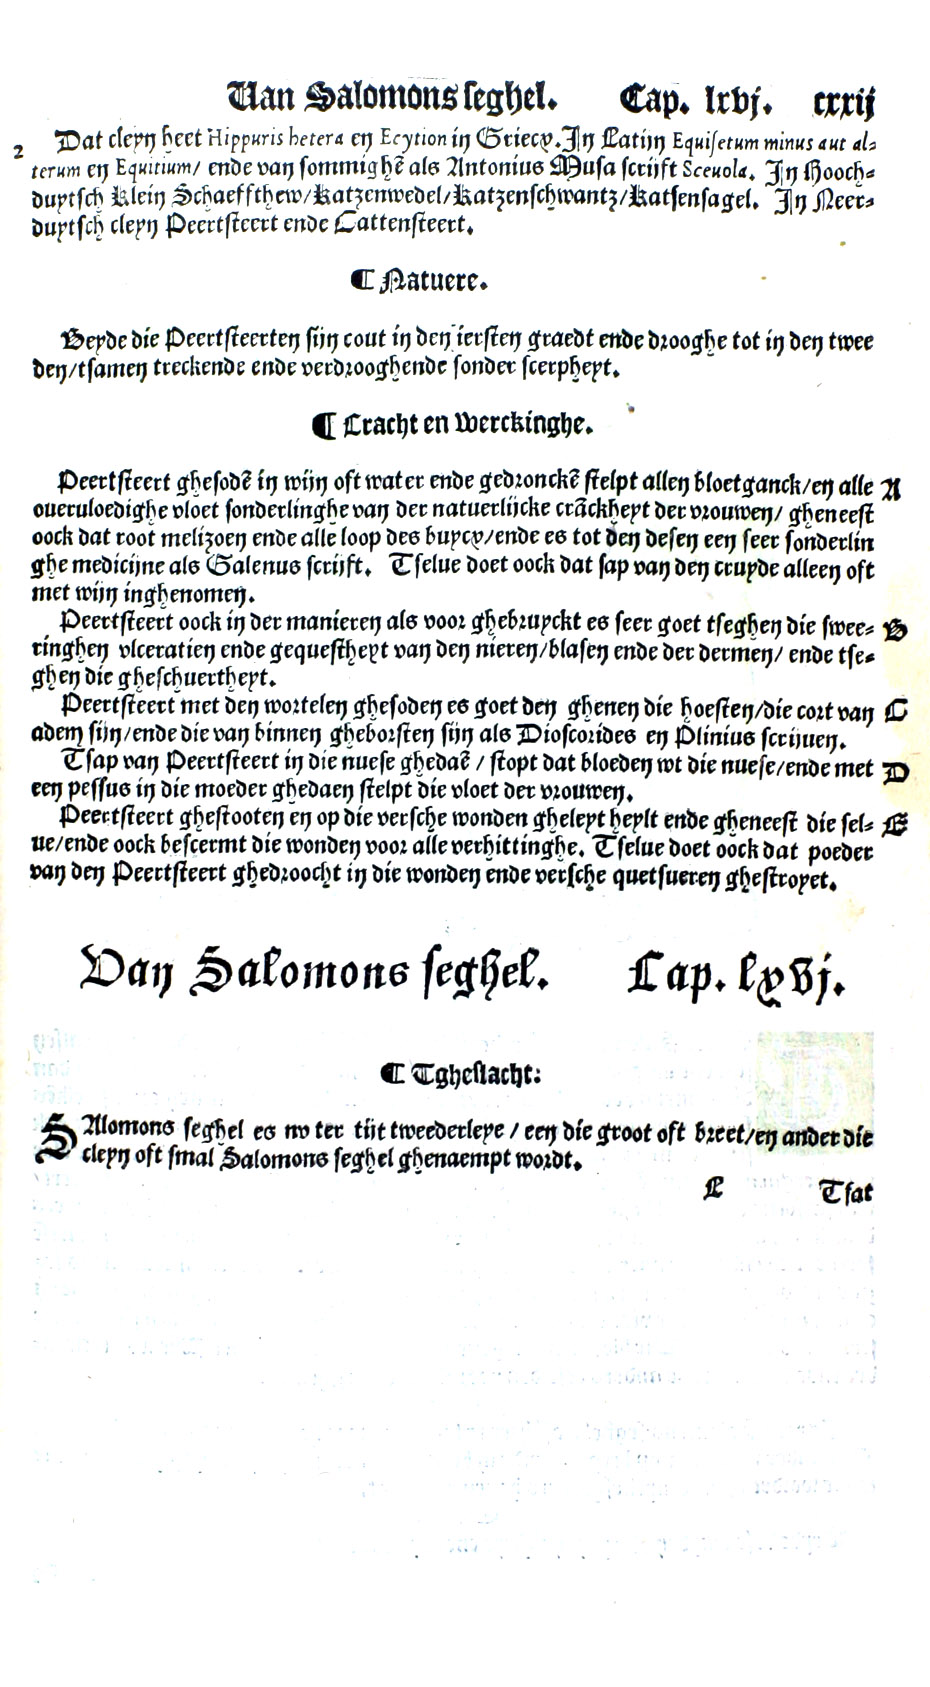 Van Salomons seghel. Cap. lxvj. cxxij
2 Dat cleyn heet Hippuris hetera en Ecytion in Griecx. In Latijn Equisetum minus aut al⸗
terum en Equitium/ ende van sommighẽ als Antonius Musa scrijft Sceuola. In Hooch⸗
duytsch Klein Schaeffthew/Katzenwedel/Katzenschwantz/Katsensagel. In Neer⸗
duytsch cleyn Peertsteert ende Cattensteert.
¶ Natuere.
Beyde die Peertsteerten sijn cout in den iersten graedt ende drooghe tot in den twee
den/tsamen treckende ende verdrooghende sonder scerpheyt.
¶ Cracht en Werckinghe.
Peertsteert ghesodẽ in wijn oft water ende gedronckẽ stelpt allen bloetganck/en alle A
oueruloedighe vloet sonderlinghe van der natuerlijcke crãckheyt der vrouwen/ gheneest
oock dat root melizoen ende alle loop des buycx/ende es tot den desen een seer sonderlin
ghe medicijne als Galenus scrijft. Tselue doet oock dat sap van den cruyde alleen oft
met wijn inghenomen.
Peertsteert oock in der manieren als voor ghebruyckt es seer goet tseghen die swee⸗ B
ringhen vlceratien ende gequestheyt van den nieren/blasen ende der dermen/ ende tse⸗
ghen die gheschuertheyt.
Peertsteert met den wortelen ghesoden es goet den ghenen die hoesten/die cort van C
adem sijn/ende die van binnen gheborsten sijn als Dioscorides en Plinius scrijuen.
Tsap van Peertsteert in die nuese ghedaẽ / stopt dat bloeden wt die nuese/ende met D
een pessus in die moeder ghedaen stelpt die vloet der vrouwen.
Peertsteert ghestooten en op die versche wonden gheleyt heylt ende gheneest die sel⸗ E
ue/ende oock bescermt die wonden voor alle verhittinghe. Tselue doet oock dat poeder
van den Peertsteert ghedroocht in die wonden ende versche quetsueren ghestroyet.
Van Salomons seghel. Cap. lxvj.
¶ Tgheslacht:
SAlomons seghel es nv ter tijt tweederleye / een die groot oft breet/en ander die
cleyn oft smal Salomons seghel ghenaempt wordt.
L Tsat